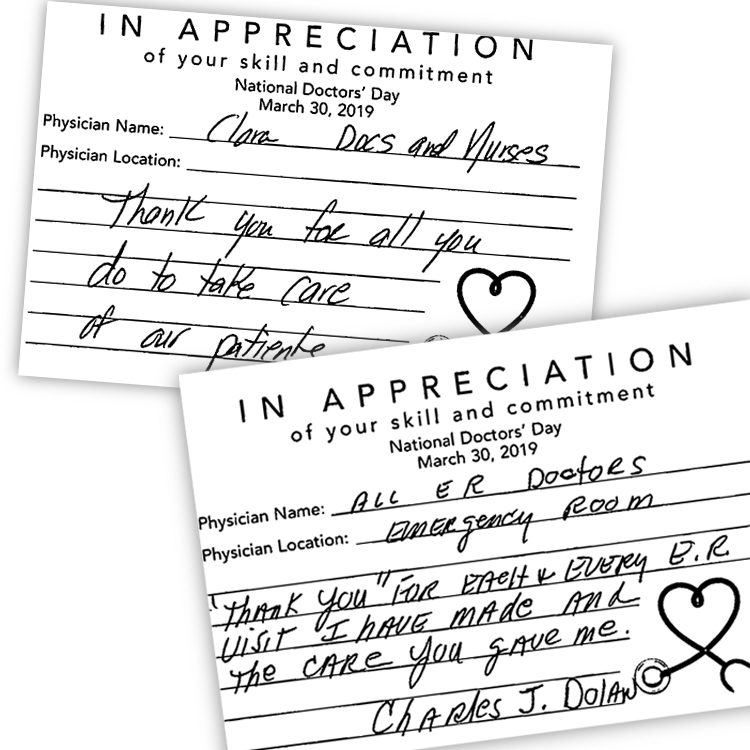 IN APPRECIATION
of your skill and commitment
National Doctors' Day
March 30, 2019
Physician Name: Clara Docs and Nurses
Physician Location:
Thank you for all you
do to take care
of our patients
IN APPRECIATION
of your skill and commitment
National Doctors' Day
March 30, 2019
Physician Name: ALL ER Doctors
Physician Location: Emergency Room
"Thank you" For Each & Every E.R.
Visit I have made and
the care you gave me.
Charles J. Dolan